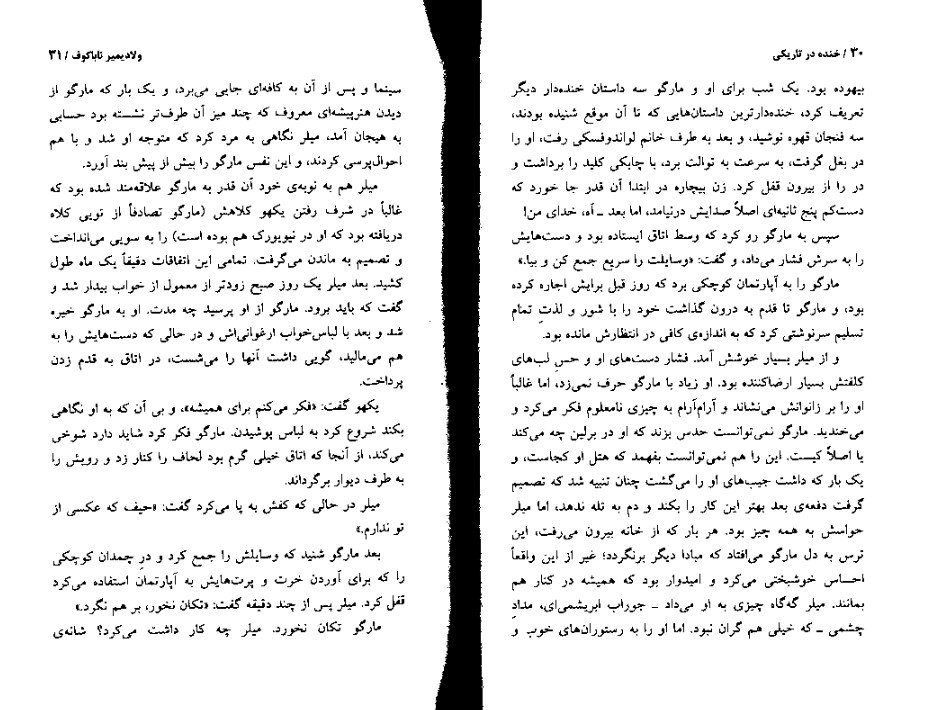 ۳۰ / خنده در تاریکی
بیهوده بود. یک شب برای او و مارگو سه داستان خنده‌دار دیگر
تعریف کرد، خنده‌دارترین داستان‌هایی که تا آن موقع شنیده بودند،
سه فنجان قهوه نوشید، و بعد به طرف خانم لواندوفسکی رفت، او را
در بغل گرفت، به سرعت به توالت برد، با چابکی کلید را برداشت و
در را از بیرون قفل کرد. زن بیچاره در ابتدا آن قدر جا خورد که
دست‌کم پنج ثانیه‌ای اصلاً صدایش درنیامد، اما بعد ـ آه، خدای من!
سپس به مارگو رو کرد که وسط اتاق ایستاده بود و دست‌هایش
را به سرش فشار می‌داد، و گفت: «وسایلت را سریع جمع کن و بیا.»
مارگو را به آپارتمان کوچکی برد که روز قبل برایش اجاره کرده
بود، و مارگو تا قدم به درون گذاشت خود را با شور و لذتِ تمام
تسلیم سرنوشتی کرد که به اندازه‌ی کافی در انتظارش مانده بود.
و از میلر بسیار خوشش آمد. فشار دست‌های او و حسِ لب‌های
کلفتش بسیار ارضاکننده بود. او زیاد با مارگو حرف نمی‌زد، اما غالباً
او را بر زانوانش می‌نشاند و آرام‌آرام به چیزی نامعلوم فکر می‌کرد و
می‌خندید. مارگو نمی‌توانست حدس بزند که او در برلین چه می‌کند
یا اصلاً کیست. این را هم نمی‌توانست بفهمد که هتل او کجاست، و
یک بار که داشت جیب‌های او را می‌گشت چنان تنبیه شد که تصمیم
گرفت دفعه‌ی بعد بهتر این کار را بکند و دم به تله ندهد، اما میلر
حواسش به همه چیز بود. هر بار که از خانه بیرون می‌رفت، این
ترس به دل مارگو می‌افتاد که مبادا دیگر برنگردد؛ غیر از این واقعاً
احساس خوشبختی می‌کرد و امیدوار بود که همیشه در کنار هم
بمانند. میلر گه‌گاه چیزی به او می‌داد ـ جوراب ابریشمی‌ای، مدادِ
چشمی ـ که خیلی هم گران نبود. اما او را به رستوران‌های خوب و
ولادیمیر ناباکوف / ۳۱
سینما و پس از آن به کافه‌ای جایی می‌برد، و یک بار که مارگو از
دیدن هنرپیشه‌ای معروف که چند میز آن طرف‌تر نشسته بود حسابی
به هیجان آمد، میلر نگاهی به مرد کرد که متوجه او شد و با هم
احوال‌پرسی کردند، و این نفس مارگو را بیش از پیش بند آورد.
میلر هم به نوبه‌ی خود آن قدر به مارگو علاقه‌مند شده بود که
غالباً در شرف رفتن یکهو کلاهش (مارگو تصادفاً از تویی کلاه
دریافته بود که او در نیویورک هم بوده است) را به سویی می‌انداخت
و تصمیم به ماندن می‌گرفت. تمامی این اتفاقات دقیقاً یک ماه طول
کشید. بعد میلر یک روز صبح زودتر از معمول از خواب بیدار شد و
گفت که باید برود. مارگو از او پرسید چه مدت. او به مارگو خیره
شد و بعد با لباس‌خواب ارغوانی‌اش و در حالی که دست‌هایش را به
هم می‌مالید، گویی داشت آنها را می‌شست، در اتاق به قدم زدن
پرداخت.
یکهو گفت: «فکر می‌کنم برای همیشه»، و بی آن که به او نگاهی
بکند شروع کرد به لباس پوشیدن. مارگو فکر کرد شاید دارد شوخی
می‌کند، از آنجا که اتاق خیلی گرم بود لحاف را کنار زد و رویش را
به طرف دیوار برگرداند.
میلر در حالی که کفش به پا می‌کرد گفت: «حیف که عکسی از
تو ندارم.»
بعد مارگو شنید که وسایلش را جمع کرد و درِ چمدان کوچکی
را که برای آوردن خرت و پرت‌هایش به آپارتمان استفاده می‌کرد
قفل کرد. میلر پس از چند دقیقه گفت: «تکان نخور، بر هم نگرد.»
مارگو تکان نخورد. میلر چه کار داشت می‌کرد؟ شانه‌ی